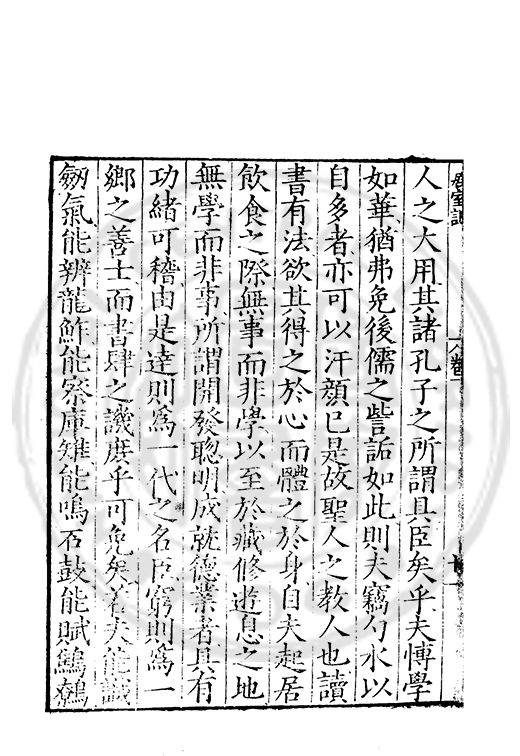 人之大用其諸孔子之所謂具臣矣乎夫博學
如華猶弗免後儒之訾詬如此則夫竊勺水以
自多者亦可以汗顏巳是故聖人之教人也讀
書有法欲其得之於心而體之於身自夫起居
飲食之際無事而非學以至於藏修遊息之地
無學而非事所謂開發聰明成就德業者具有
功緒可稽由是達則爲一代之名臣窮則爲一
鄉之善士而書肆之譏庶乎可免矣若夫能識
劒氣能辨龍鮓能察庫雉能鳴石鼓能賦鷦鷯